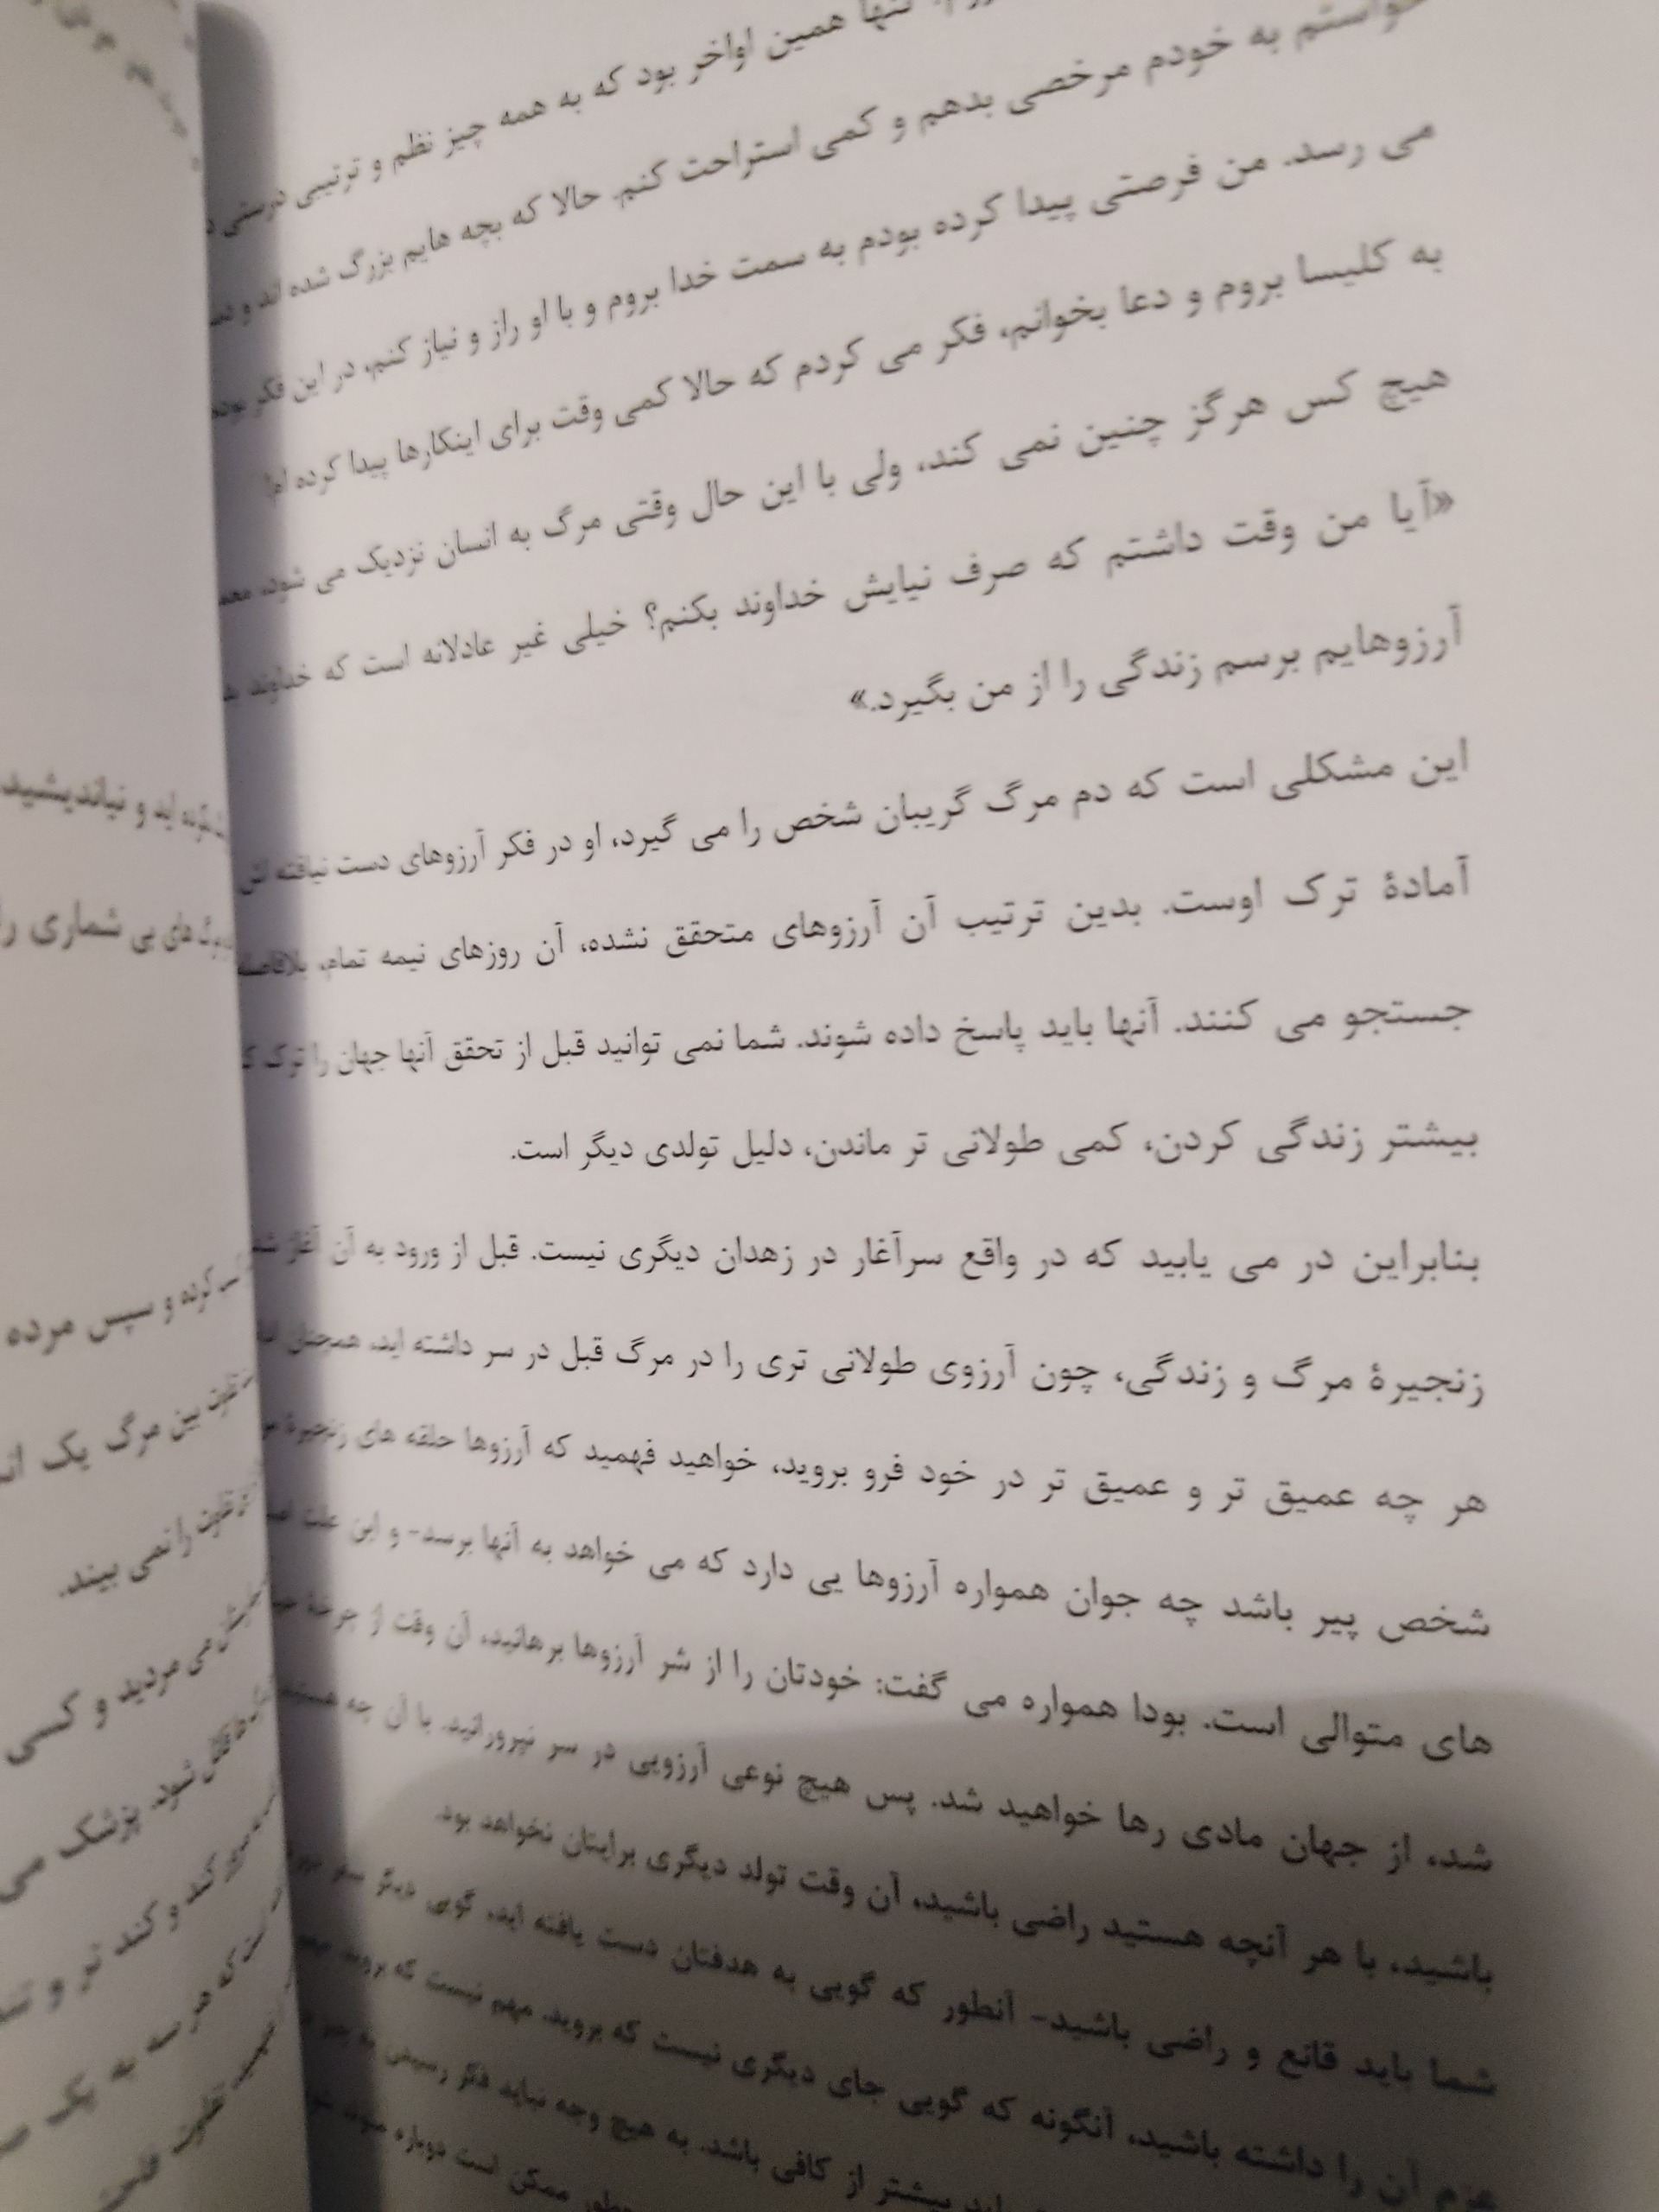 تنها همین اواخر بود که به همه چیز نظم و ترتیبی درستی
خواستم به خودم مرخصی بدهم و کمی استراحت کنم. حالا که بچه هایم بزرگ شده اند و
می رسد. من فرصتی پیدا کرده بودم به سمت خدا بروم و با او راز و نیاز کنم، در این فکر بودم
به کلیسا بروم و دعا بخوانم، فکر می کردم که حالا کمی وقت برای اینکارها پیدا کرده ام!
هیچ کس هرگز چنین نمی کند، ولی با این حال وقتی مرگ به انسان نزدیک می شود،
«آیا من وقت داشتم که صرف نیایش خداوند بکنم؟ خیلی غیر عادلانه است که خداوند
آرزوهایم برسم زندگی را از من بگیرد.»
این مشکلی است که دم مرگ گریبان شخص را می گیرد، او در فکر آرزوهای دست نیافته اش
آمادهٔ ترک اوست. بدین ترتیب آن آرزوهای متحقق نشده، آن روزهای نیمه تمام، بلافاصله
جستجو می کنند. آنها باید پاسخ داده شوند. شما نمی توانید قبل از تحقق آنها جهان را ترک
بیشتر زندگی کردن، کمی طولانی تر ماندن، دلیل تولدی دیگر است.
بنابراین در می یابید که در واقع سرآغار در زهدان دیگری نیست. قبل از ورود به آن آغاز
زنجیرهٔ مرگ و زندگی، چون آرزوی طولانی تری را در مرگ قبل در سر داشته اید، همچنان
هر چه عمیق تر و عمیق تر در خود فرو بروید، خواهید فهمید که آرزوها حلقه های زنجیرهٔ
شخص پیر باشد چه جوان همواره آرزوها یی دارد که می خواهد به آنها برسد- و این علت
های متوالی است. بودا همواره می گفت: خودتان را از شر آرزوها برهانید، آن وقت از چرخهٔ
شد، از جهان مادی رها خواهید شد. پس هیچ نوعی آرزویی در سر نپرورانید. با آن چه هستید
باشید، با هر آنچه هستید راضی باشید، آن وقت تولد دیگری برایتان نخواهد بود.
شما باید قانع و راضی باشید- آنطور که گویی به هدفتان دست یافته اید، گویی دیگر سفر
عزم آن را داشته باشید، آنگونه که گویی جای دیگری نیست که بروید. مهم نیست که بروید
باید بیشتر از کافی باشد. به هیچ وجه نباید فکر رسیدن به چیز
ممکن است دوباره متولد
و نیاندیشید
های بی شماری را
کرده و سپس مرده
بین مرگ یک
را نمی بیند.
می مردید و کسی
شود. پزشک می
کند و کند تر و
که هر سه به یک